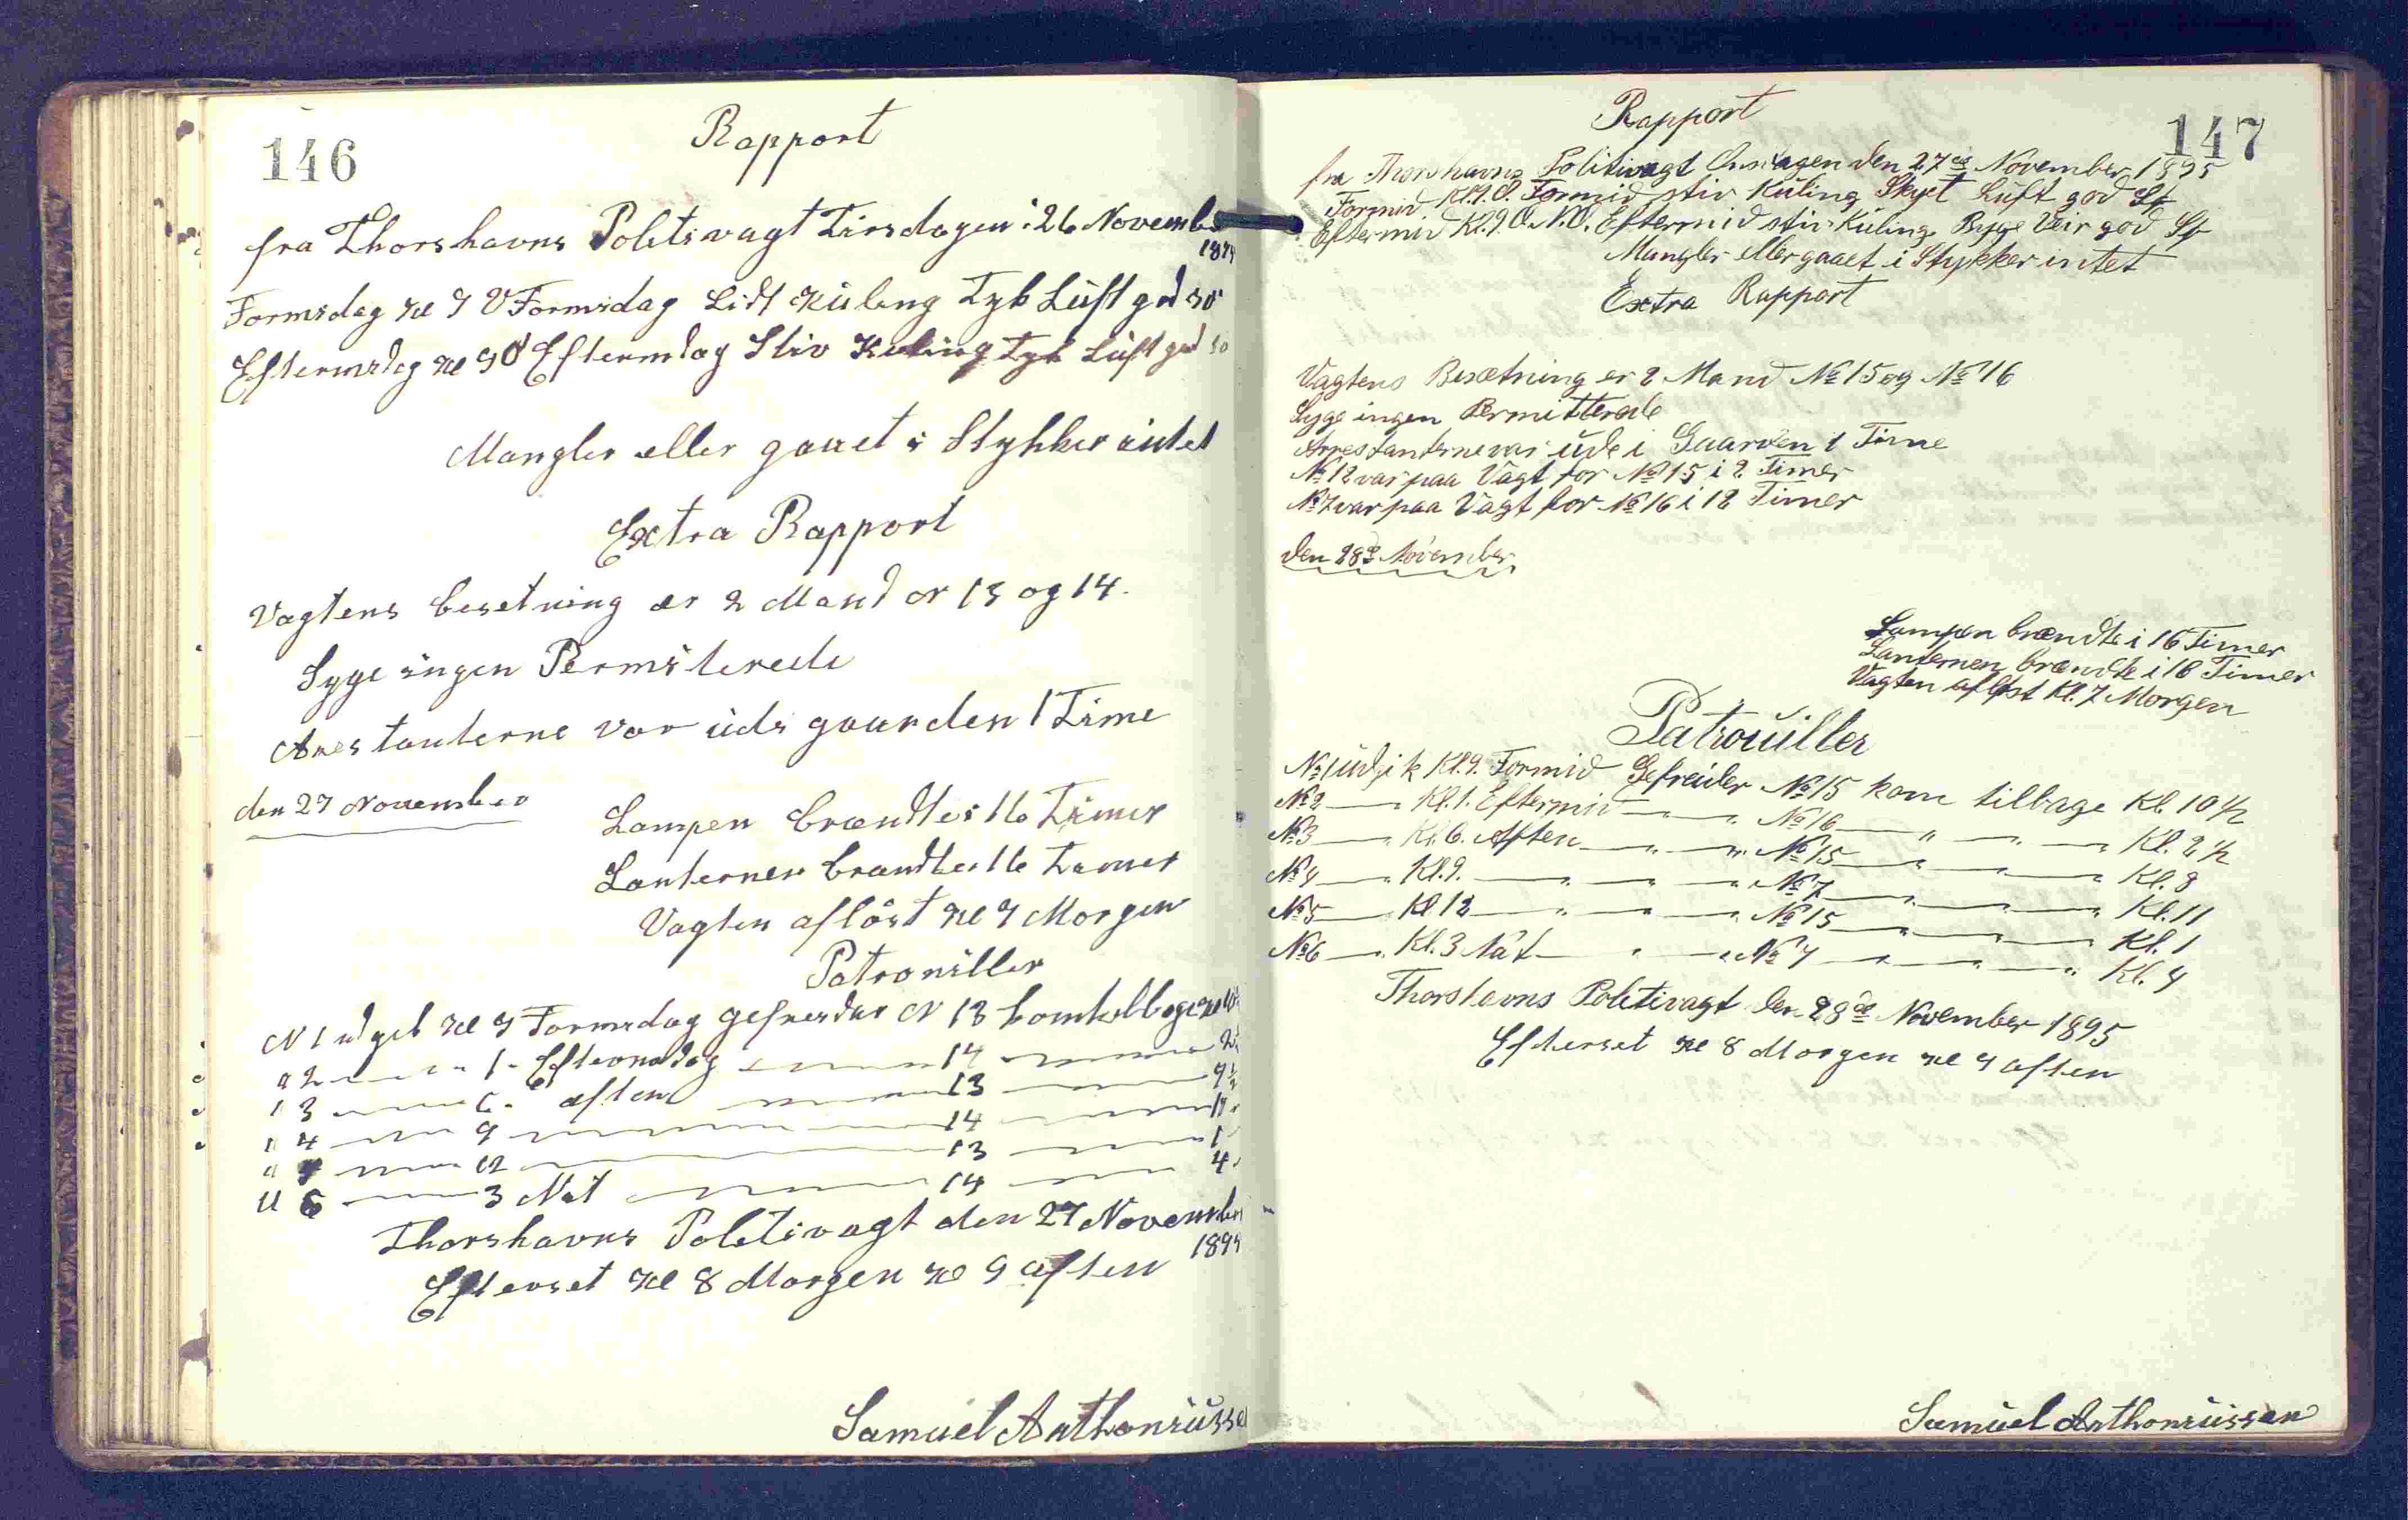 146
Rapport
fra Thorshavns Politivagt Tirsdagen 26 Novembe
Formidag Kl 9 V Formidag Lidt Küling Tyk Lüft god
Eftermidag Kl 9 O Eftermdag Stiv Küling Tyk Lüft god
Mangler eller gaaet i Stykker intet
Extra Rapport
Vagtens besetning er 2 Mand N 13 og 14.
Syge ingen Permiterede
Arestanterne var üdi gaarden 1 Time
den 27 November
Lampen brændte i 16 Timer
Lanternen brændte i 16 Timer
Vagten aflöst Kl 7 Morgen
Patrouiller
N 1 udgik Kl 9 Formidag gefreider N 13 kom tilbage Kl
" 2 — " — 1 - Eftermidag — 14 — 2
" 3 — 6 - aften — 13 —
" 4 — 9 — 14 — 11
" — 12 — 13 — 1
" 6 — 3 Nat — 14 — 4
Thorshavns Politivagt den 27 November
189
Efterset Kl 8 Morgen Kl 9 aften
Samuel Anthoniüsse
147
Rapport
fra Thorshavns Politivagt Onsdagen den 27de November 1895
Formid Kl. 9. O. Formid stiv Küling Skyet Lüft god
Eftermid Kl. 9. O.N.O. Eftermid stiv Küling Byge Veir god
Mangler eller gaaet i Stykker intet
Extra Rapport
Vagtens Besætning er 2 Mand No 15 og No 16
Syge ingen Permitterede
Arrestanterne var üde i Gaarden 1 Time
No 12 var paa Vagt for No 15 i 2 Timer
No 7 var paa Vagt for No 16 i 12 Timer
den 28de November
Lampen brændte i 16 Timer
Lanternen brændte i 16 Timer
Vagten afløst Kl. 7 Morgen
Patroüiller
No 1 üdgik Kl. 9. Formid Gefreider No 15 kom tilbage Kl. 10 1/2
No 2 — " Kl. 1. Eftermid — " No 16 — " — " — " Kl. 2 1/2
No 3 — " Kl. 6. Aften — " — " No 15 — " — " — " Kl. 8
No 4 — " Kl. 9. — " — " — " No 7 — " — " — " Kl. 11
No 5 — " Kl 12 — " — " — " No 15 — " — " — " Kl. 1
No 6 — " Kl. 3 Nat — " — " No 7 — " — " — " Kl. 4
Thorshavns Politivagt den 28de November 1895
Efterset Kl 8 Morgen Kl 9 aften
Samüel Anthoniüssen